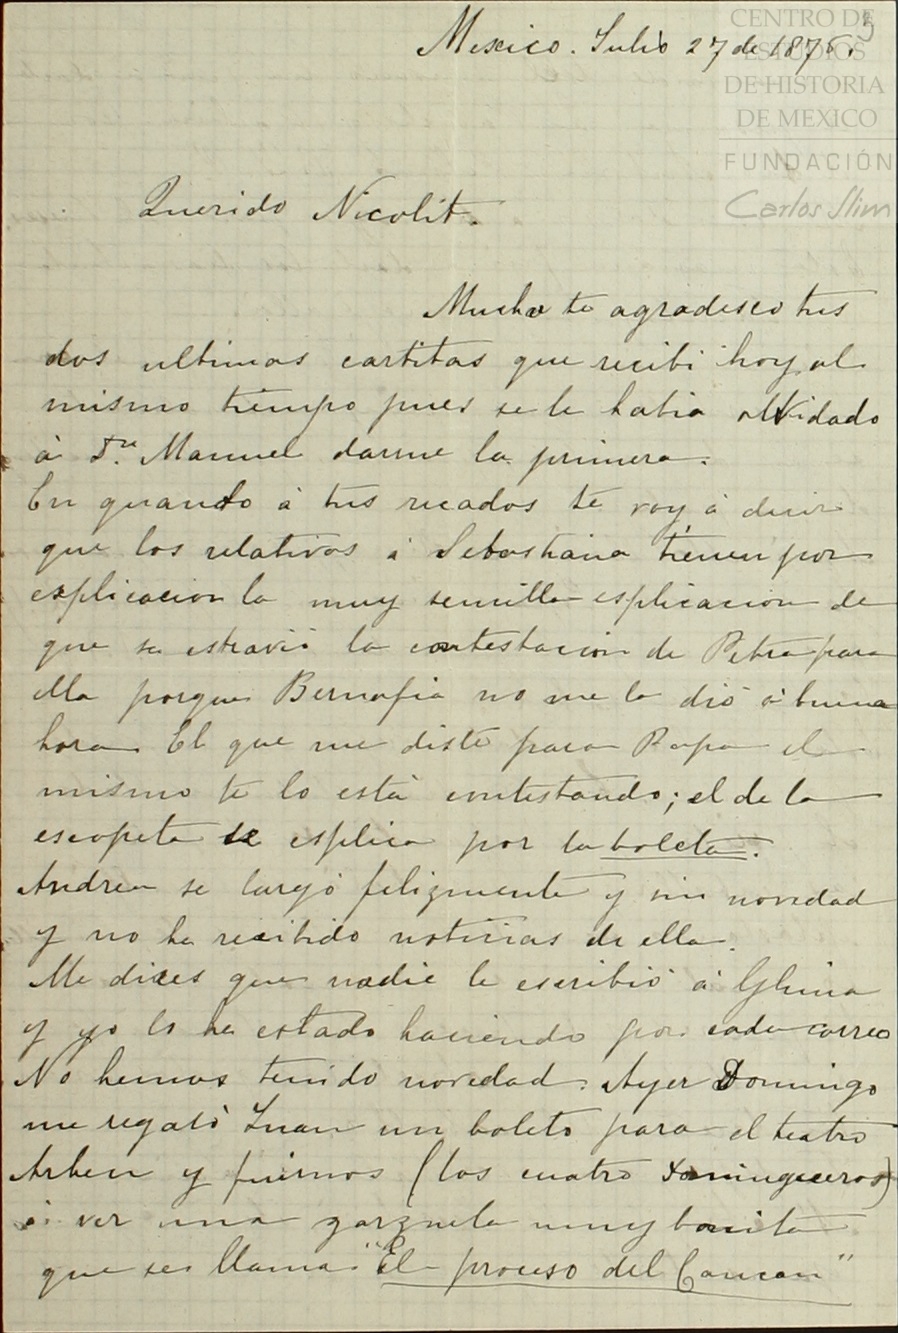 CENTRO DE
ESTUDIOS
DE HISTORIA
DE MEXICO
FUNDACIÓN
Carlos Slim
3
Mexico. Julio 27 de 1875.
Querido Nicolit.
Mucho te agradesco tus
dos ultimas cartitas que recibi hoy al
mismo tiempo pues se le habia olvidado
á Dn. Manuel darme la primera.
En quando á tus recados te voy á decir
que los relativos á Sebastiana tienen por
esplicacion la muy sencilla esplicacion de
que se estravió la contestación de Petra para
ella porque Bernafia no me la dió á buena
hora. El que me diste para Papa el
mismo te lo está contestando; el de la
escopeta se esplica por la boleta.
Andrea se largó felizmente y sin novedad
y no he recibido noticias de ella.
Me dices que nadie le escribió á Ghina
y yo lo he estado haciendo por cada correo
No hemos tenido novedad. Ayer Domingo
me regaló Juan un boleto para el teatro
Arbeu y fuimos (los cuatro domingueros)
á ver una zarzuela muy bonita
que se llama "El proceso del Cancan"